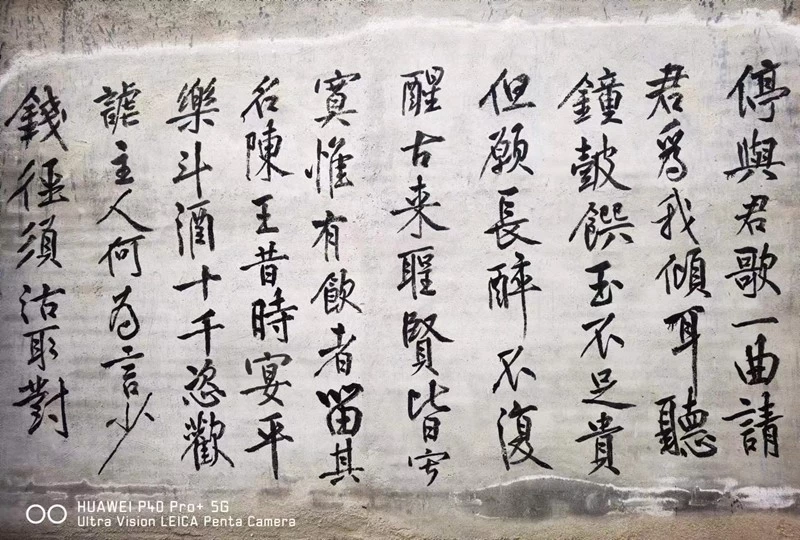 停與君歌一曲請
君爲我傾耳聽
鐘鼓饌玉不足貴
但願長醉不復
醒古来聖賢皆寂
寞惟有飲者留其
名陳王昔時宴平
樂斗酒十千恣歡
謔主人何為言少
錢徑須沽取對
HUAWEI P40 Pro+ 5G
Ultra Vision LEICA Penta Camera